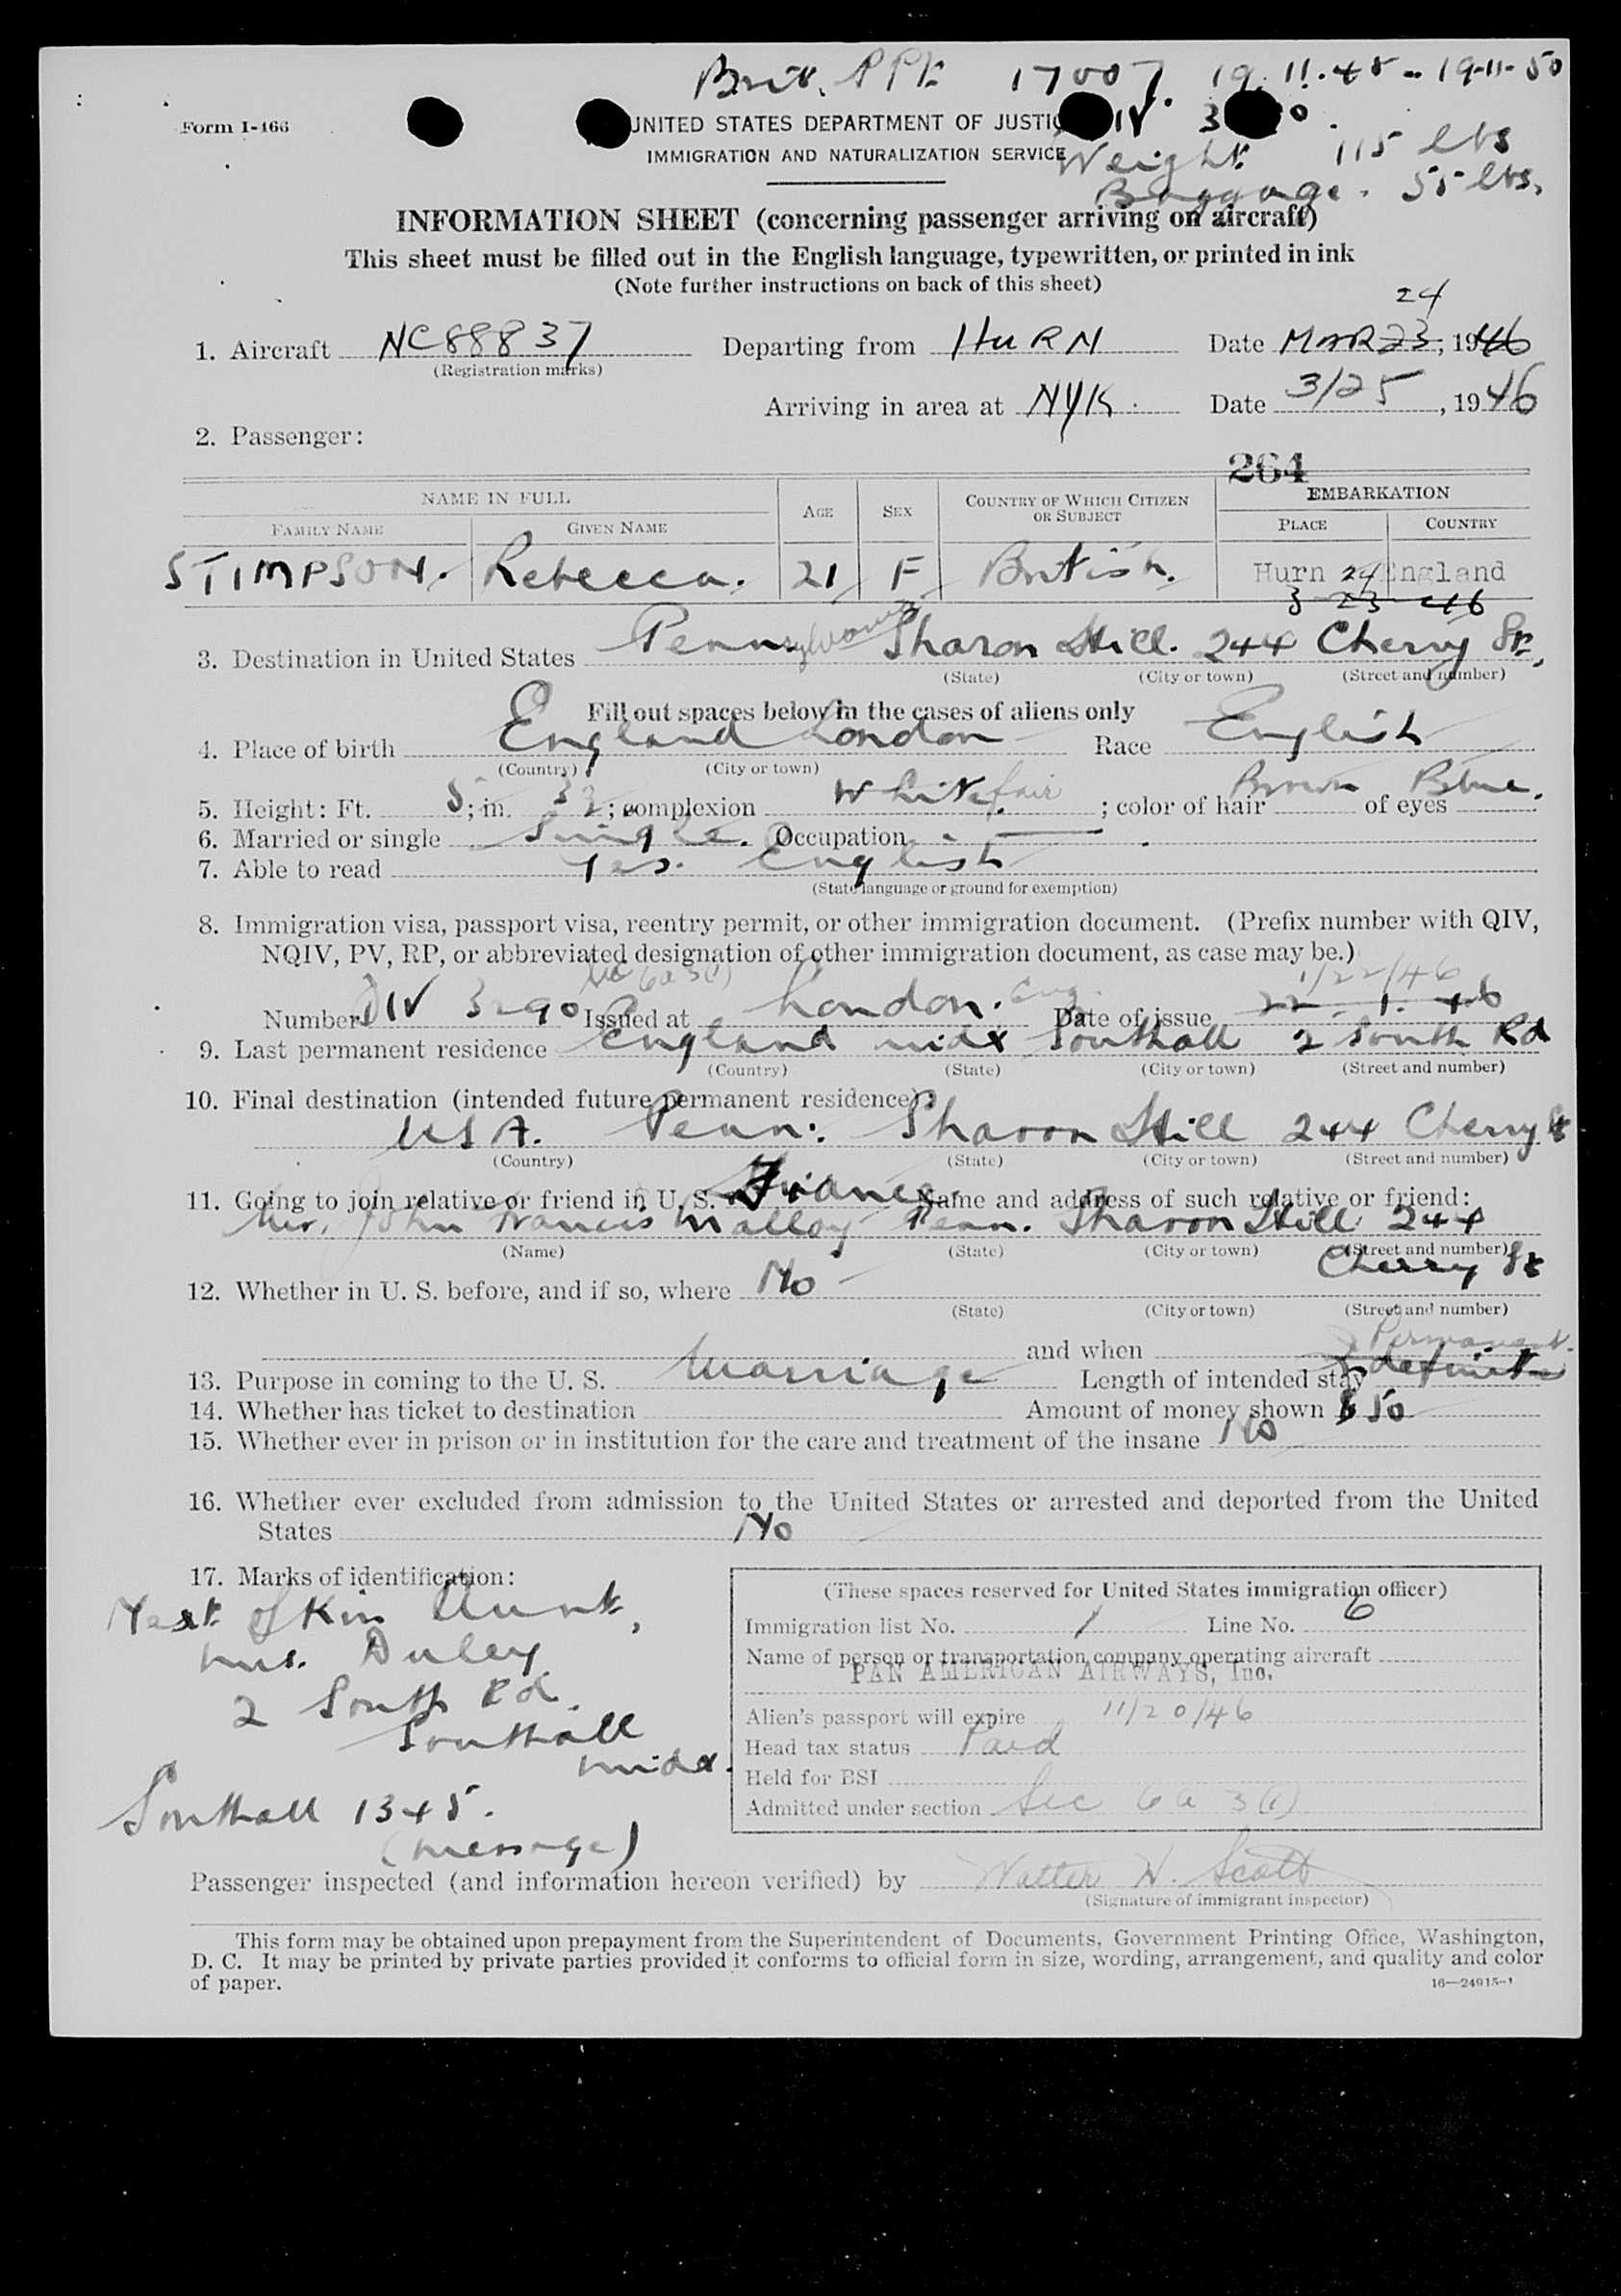 Brit. PPt. 17007 19.11.45 - 19-11-50
Form I-466
UNITED STATES DEPARTMENT OF JUSTIC IV. 3 0.
IMMIGRATION AND NATURALIZATION SERVICE
Weight 115 lbs
Baggage. 55 lbs.
INFORMATION SHEET (concerning passenger arriving on aircraft)
This sheet must be filled out in the English language, typewritten, or printed in ink
(Note further instructions on back of this sheet)
24
1. Aircraft NC88837 Departing from HURN Date MAR 23, 1946
(Registration marks)
Arriving in area at NYK. Date 3/25, 1946
2. Passenger:
264
NAME IN FULL AGE SEX COUNTRY OF WHICH CITIZEN OR SUBJECT EMBARKATION
FAMILY NAME GIVEN NAME PLACE COUNTRY
STIMPSON. Rebecca. 21 F British. Hurn 24 England
3 23 46
3. Destination in United States Pennsylvania Sharon Hill. 244 Cherry St.,
(State) (City or town) (Street and number)
Fill out spaces below in the cases of aliens only
4. Place of birth England London Race English
(Country) (City or town)
5. Height: Ft. 5; in. ; complexion White fair; color of hair Brown of eyes Blue.
6. Married or single Single. Occupation - —
7. Able to read Yes. English
(State language or ground for exemption)
8. Immigration visa, passport visa, reentry permit, or other immigration document. (Prefix number with QIV,
NQIV, PV, RP, or abbreviated designation of other immigration document, as case may be.)
6a3(1) 1/22/46
Number QIV 3290 Issued at London. Eng. Date of issue 22. 1. 46
9. Last permanent residence England Midx Southall 2 South Rd
(Country) (State) (City or town) (Street and number)
10. Final destination (intended future permanent residence):
USA. Penn: Sharon Hill 244 Cherry St
(Country) (State) (City or town) (Street and number)
11. Going to join relative or friend in U. S. Fiance Name and address of such relative or friend:
Mr. John Francis Malloy Penn. Sharon Hill 244
(Name) (State) (City or town) (Street and number)
Cherry St
12. Whether in U. S. before, and if so, where No -
(State) (City or town) (Street and number)
and when
Permanent.
13. Purpose in coming to the U. S. Marriage Length of intended stay Indefinite
14. Whether has ticket to destination Amount of money shown $ 50
15. Whether ever in prison or in institution for the care and treatment of the insane No
16. Whether ever excluded from admission to the United States or arrested and deported from the United
States No
17. Marks of identification:
Next of Kin Aunt,
Mrs. Duley
2 South Rd.
Southall
Midx.
Southall 1345.
(message)
(These spaces reserved for United States immigration officer)
Immigration list No. 1 Line No. 6
Name of person or transportation company operating aircraft
PAN AMERICAN AIRWAYS, Inc.
Alien's passport will expire 11/20/46
Head tax status Paid
Held for BSI
Admitted under section Sec 6a 3(1)
Passenger inspected (and information hereon verified) by Walter W. Scott
(Signature of immigrant inspector)
This form may be obtained upon prepayment from the Superintendent of Documents, Government Printing Office, Washington,
D. C. It may be printed by private parties provided it conforms to official form in size, wording, arrangement, and quality and color
of paper.
16—24915-1